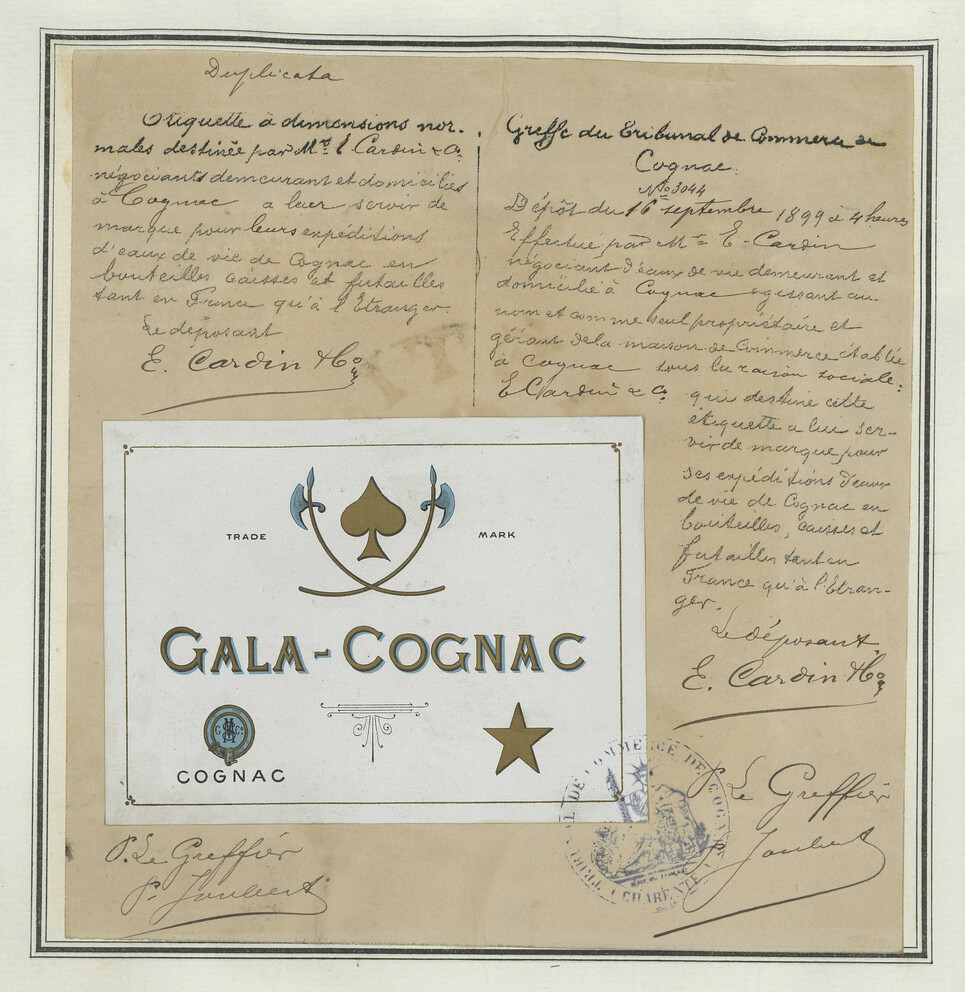 Duplicata
Etiquette à dimensions nor-
males destinée par Mr. E Cardin & Co.
négociants demeurant et domiciliés
à Cognac a leur servir de
marque pour leurs expéditions
d'eaux de vie de Cognac en
bouteilles caisses et futailles
tant en France qu'à l'Etranger.
Le déposant
E. Cardin & Co
Greffe du Tribunal de Commerce de
Cognac.
No 3044
Dépôt du 16 septembre 1899 à 4 heures
Effectué par Mr E. Cardin
négociant d'eaux de vie demeurant et
domicilié à Cognac agissant au
nom et comme seul propriétaire et
gérant de la maison de Commerce établie
à Cognac sous la raison sociale:
E Cardin & Co. qui destine cette
étiquette a lui ser-
vir de marque pour
ses expéditions d'eaux
de vie de Cognac en
bouteilles, caisses et
futailles tant en
France qu'à l'Etran-
ger.
Le déposant.
E. Cardin & Co
TRADE MARK
GALA-COGNAC
COGNAC
P. Le Greffier
P. Joubert
TRIBUNAL DE COMMERCE DE COGNAC
CHARENTE
P. Le Greffier
P. Joubert